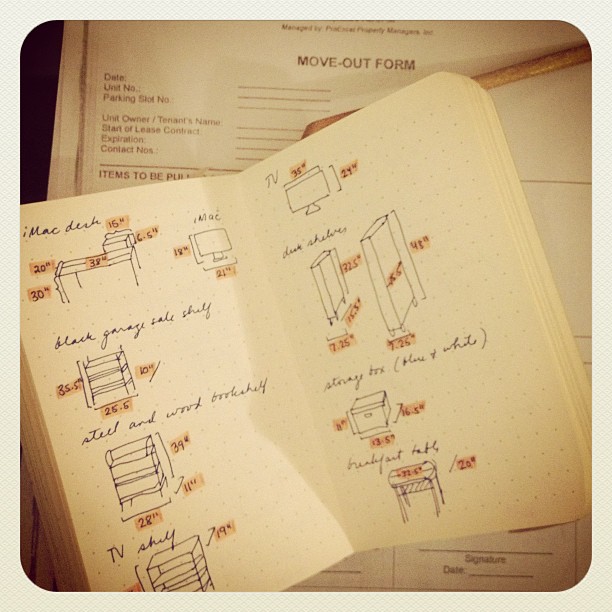 Managed by: ProExcel Property Managers, Inc.
MOVE-OUT FORM
Date:
Unit No.:
Parking Slot No.:
Unit Owner / Tenant's Name:
Start of Lease Contract:
Expiration:
Contact Nos.:
ITEMS TO BE PUL
iMac desk
15"
6.5"
20"
38"
30"
iMac
18"
21"
black garage sale shelf
35.5"
10"
25.5
steel and wood bookshelf
39"
11"
28"
TV shelf
19"
TV
35"
24"
desk shelves
32.5"
15.5"
7.25"
48"
7.25"
storage box (blue & white)
11"
16.5"
13.5"
breakfast table
20"
Signature
Date: